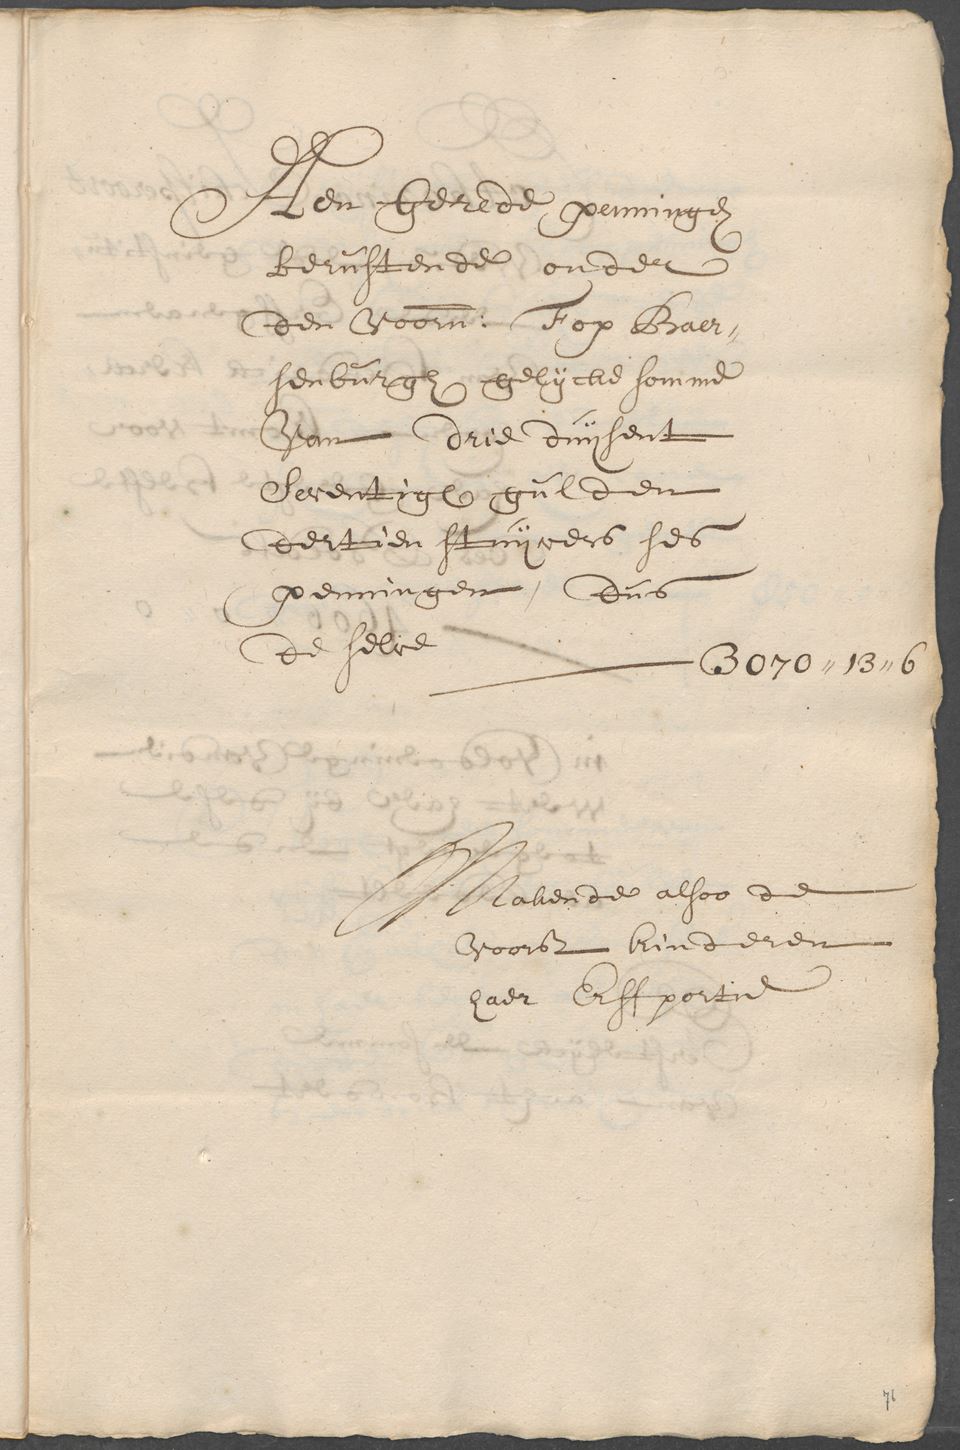 Aen gerede penningen
berustende onder
den voorn: Fop Baer,,
senburgh gelijcke somme
van drie duijsent
seventigh gulden
dertien stuijvers ses
penningen, dus
de selve 3070 ,, 13 ,, 6
Makende alsoo de
voorsz kinderen
haer Erffportie
76